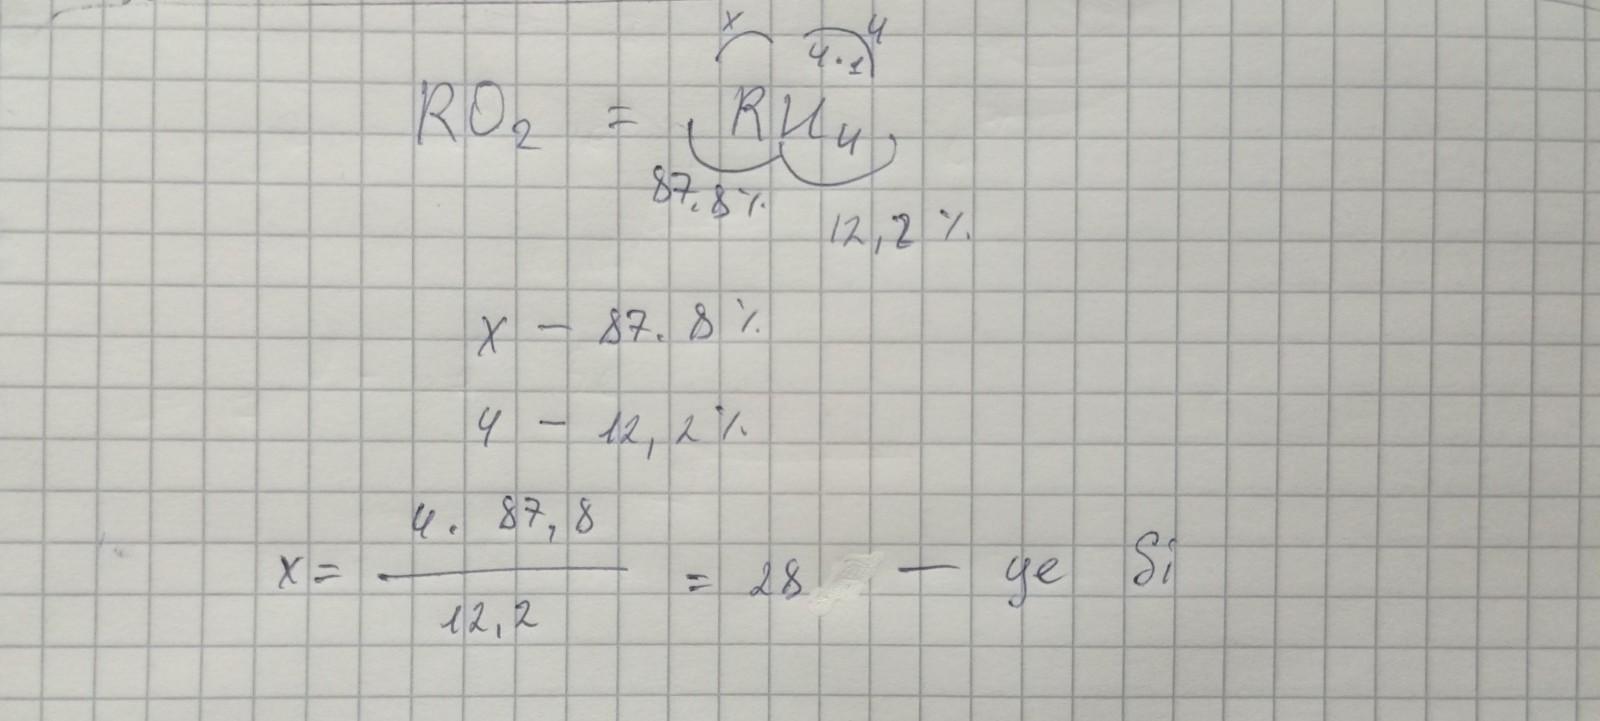 x 4
4·1
RO₂ = RH₄
87.8%
12,2%
x – 87.8%
4 – 12,2%
4. 87,8
x = ——— = 28 — це Si
12,2